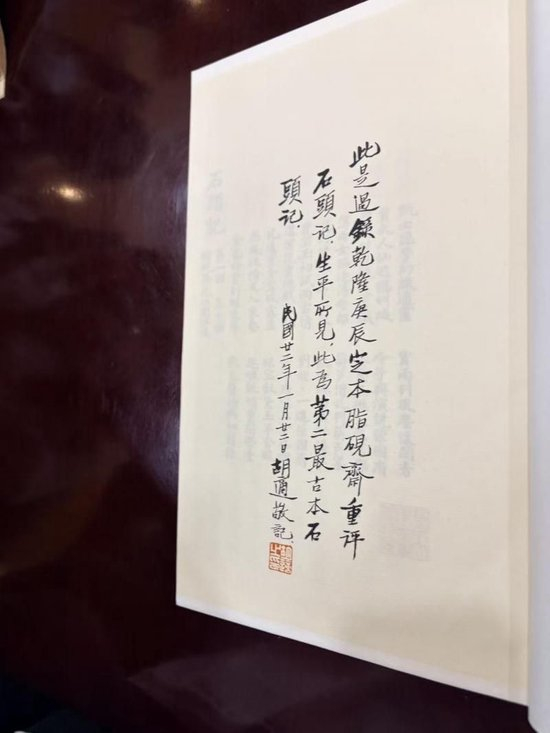 此是過錄乾隆庚辰定本脂硯齋重評
石頭記，生平所見，此為第二最古本石
頭記．
民國廿二年一月廿二日胡適敬記．